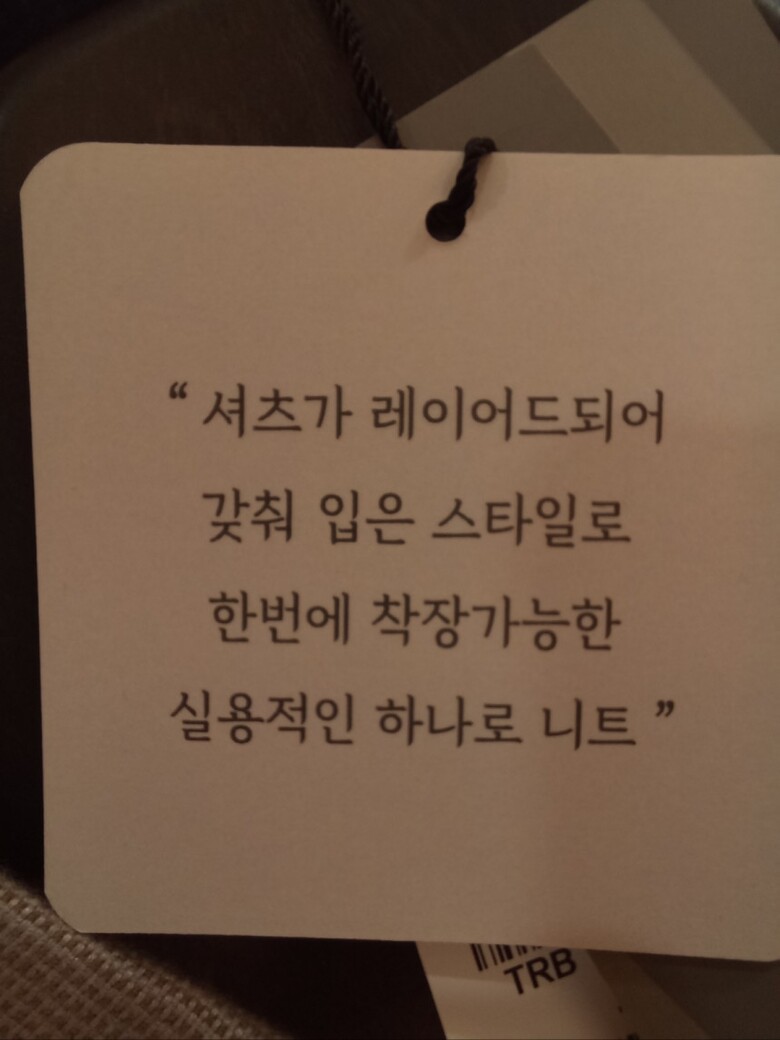 “ 셔츠가 레이어드되어
갖춰 입은 스타일로
한번에 착장가능한
실용적인 하나로 니트 ”
TRB